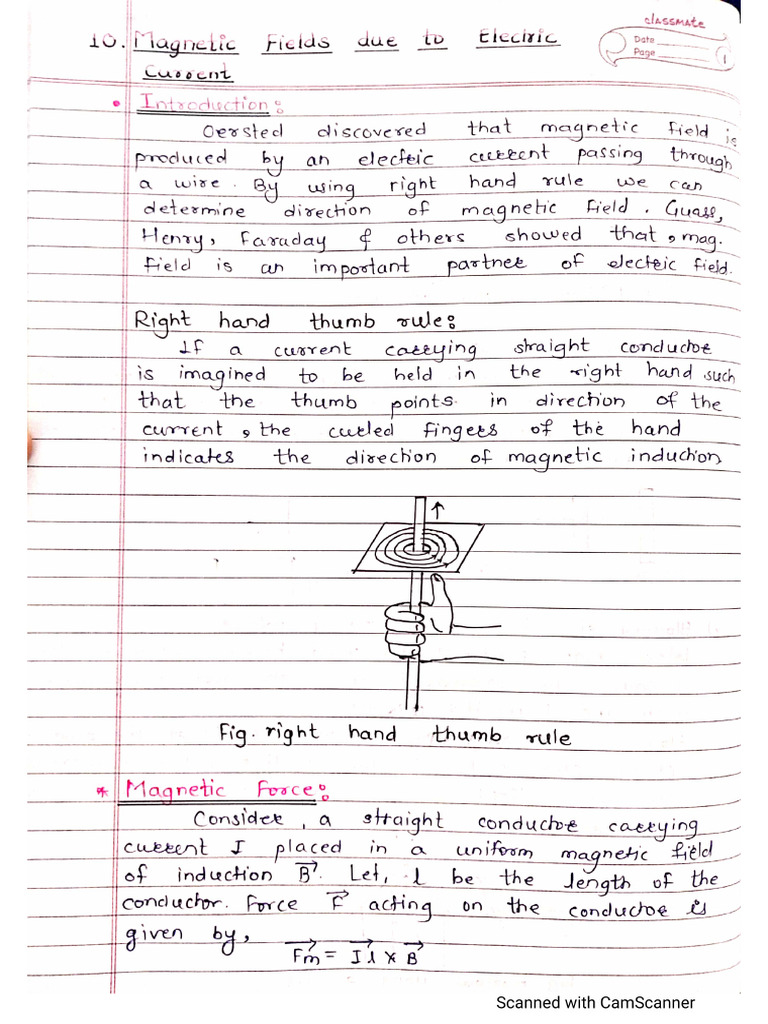 classmate
Date
Page 1
10. Magnetic Fields due to Electric
Current
• Introduction:
Oersted discovered that magnetic field is
produced by an electric current passing through
a wire. By using right hand rule we can
determine direction of magnetic field. Guass,
Henry, Faraday & others showed that, mag.
field is an important partner of electric field.
Right hand thumb rule:
If a current carrying straight conductor
is imagined to be held in the right hand such
that the thumb points in direction of the
current, the curled fingers of the hand
indicates the direction of magnetic induction
Fig. right hand thumb rule
* Magnetic Force:
Consider, a straight conductor carrying
current I placed in a uniform magnetic field
of induction B⃗. Let, l be the length of the
conductor. Force F⃗ acting on the conductor is
given by,
F⃗m = I l⃗ × B⃗
Scanned with CamScanner